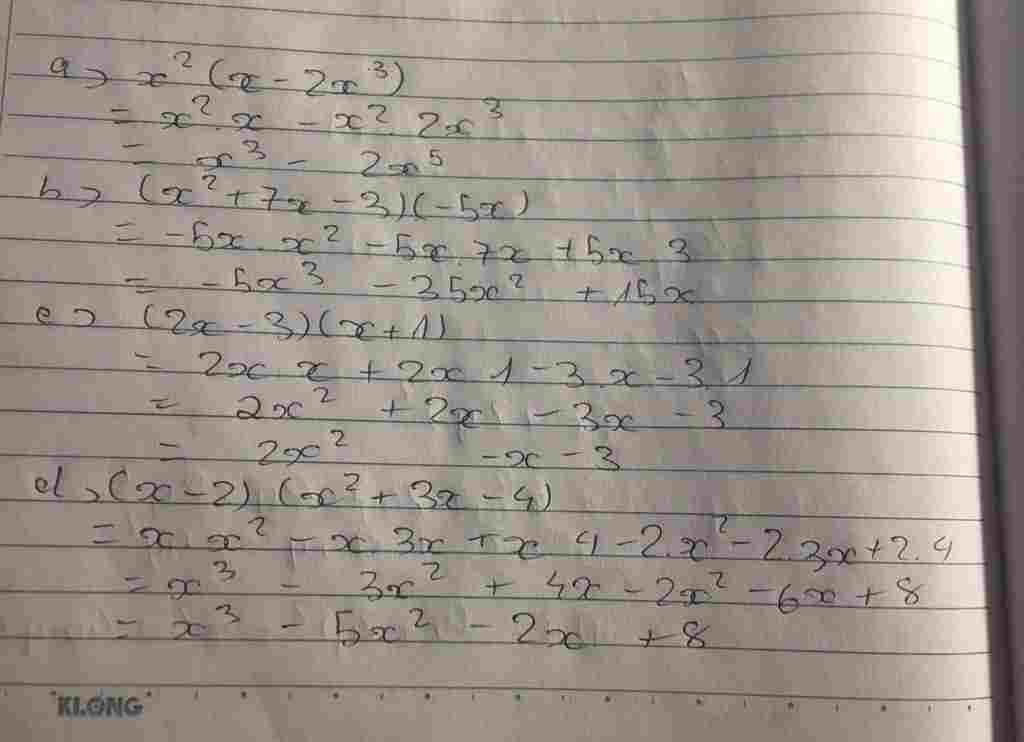 a> x² (x - 2x³)
= x². x - x². 2x³
= x³ - 2x⁵
b> (x² + 7x - 3)(-5x)
= -5x. x² - 5x. 7x + 5x. 3
= -5x³ - 35x² + 15x
c> (2x - 3)(x + 1)
= 2x. x + 2x. 1 - 3. x - 3. 1
= 2x² + 2x - 3x - 3
= 2x² - x - 3
d> (x - 2) (x² + 3x - 4)
= x. x² - x. 3x + x. 4 - 2. x² - 2. 3x + 2. 4
= x³ - 3x² + 4x - 2x² - 6x + 8
= x³ - 5x² - 2x + 8
KLONG